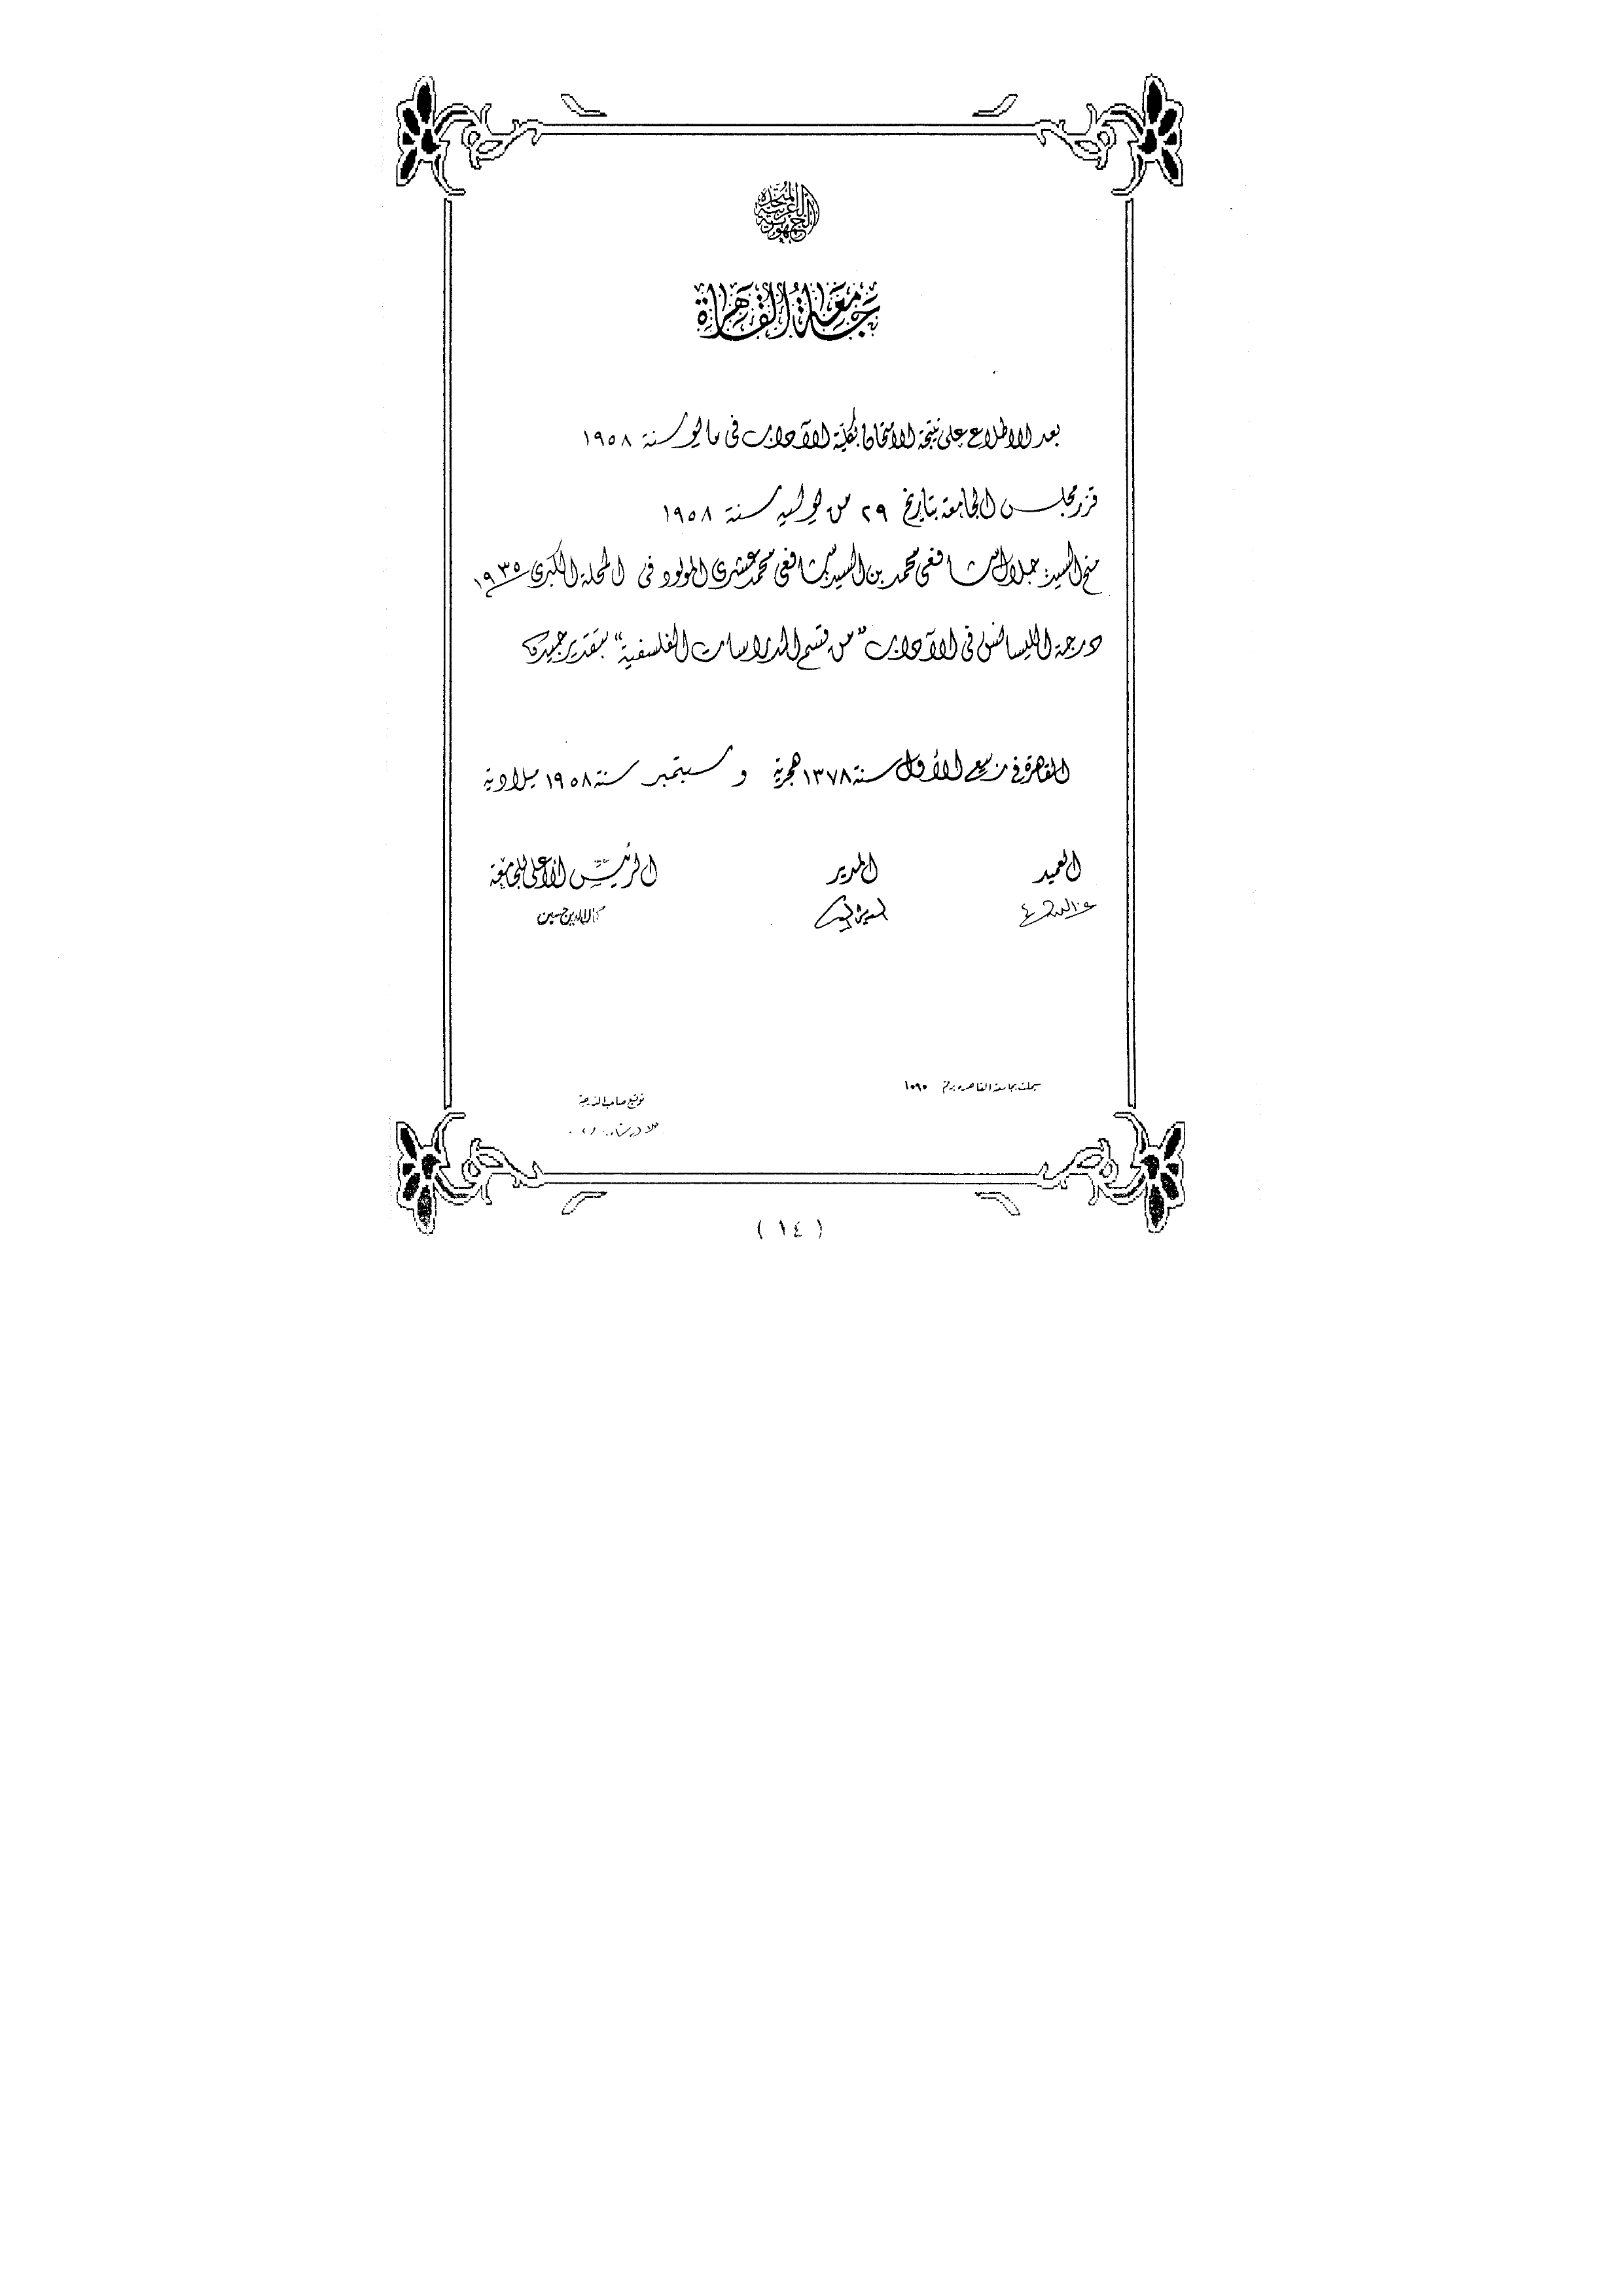 الجمهورية العربية المتحدة
جامعة القاهرة
بعد الاطلاع على نتيجة الامتحان بكلية الآداب فى مايو سنة ١٩٥٨
قرر مجلس الجامعة بتاريخ ٢٩ من يوليه سنة ١٩٥٨
منح السيد: جلال الشافعى محمد بن السيد الشافعى محمد عشرى المولود فى المحلة الكبرى ١٩٣٥
درجة الليسانس فى الآداب "من قسم الدراسات الفلسفية" بتقدير جيد
القاهرة فى ربيع الأول سنة ١٣٧٨ هجرية و سبتمبر سنة ١٩٥٨ ميلادية
العميد المدير الرئيس الأعلى للجامعة
كمال الدين حسين
سجلت بجامعة القاهرة برقم ١٠٩٥
توقيع صاحب الدرجة
( ١٤ )